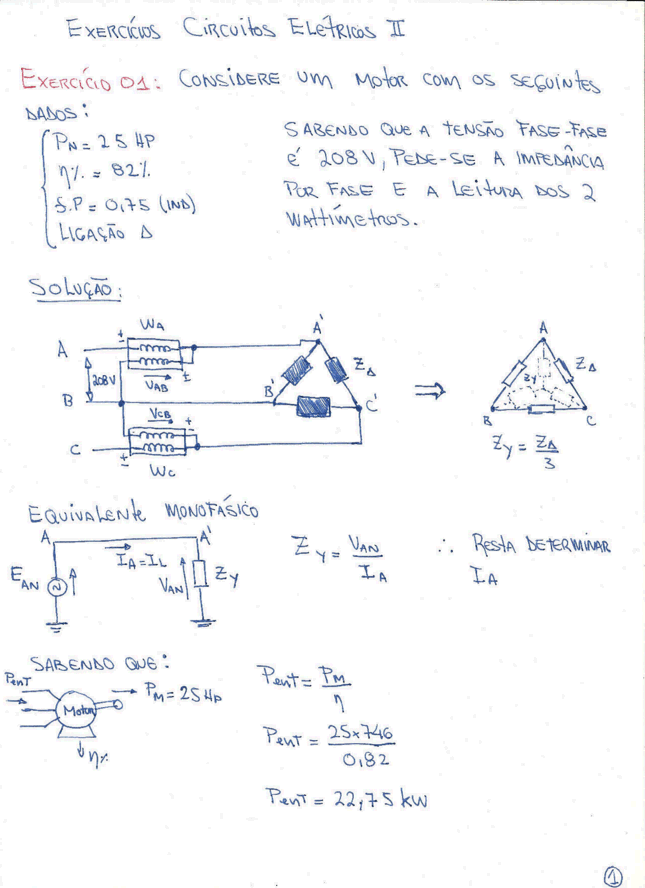 EXERCÍCIOS CIRCUITOS ELETRICOS II
EXERCÍCIO 01: CONSIDERE UM MOTOR COM OS SEGUINTES
DADOS:
PN = 25 HP
η% = 82%
f.P = 0,75 (IND)
LIGAÇÃO Δ
SABENDO QUE A TENSÃO FASE-FASE
É 208 V, PEDE-SE A IMPEDÂNCIA
POR FASE E A LEITURA DOS 2
WATTÍMETROS.
SOLUÇÃO:
WA
A
208V
VAB
B
VCB
C
WC
A'
B'
C'
ZΔ
⇒
A
B
C
ZY
ZΔ
ZY = ZΔ/3
EQUIVALENTE MONOFÁSICO
A
A'
IA = IL
EAN
VAN
ZY
ZY = VAN/IA
∴ RESTA DETERMINAR
IA
SABENDO QUE:
PENT
Motor
PM = 25 HP
η%
PENT = PM/η
PENT = 25x746/0,82
PENT = 22,75 KW
1